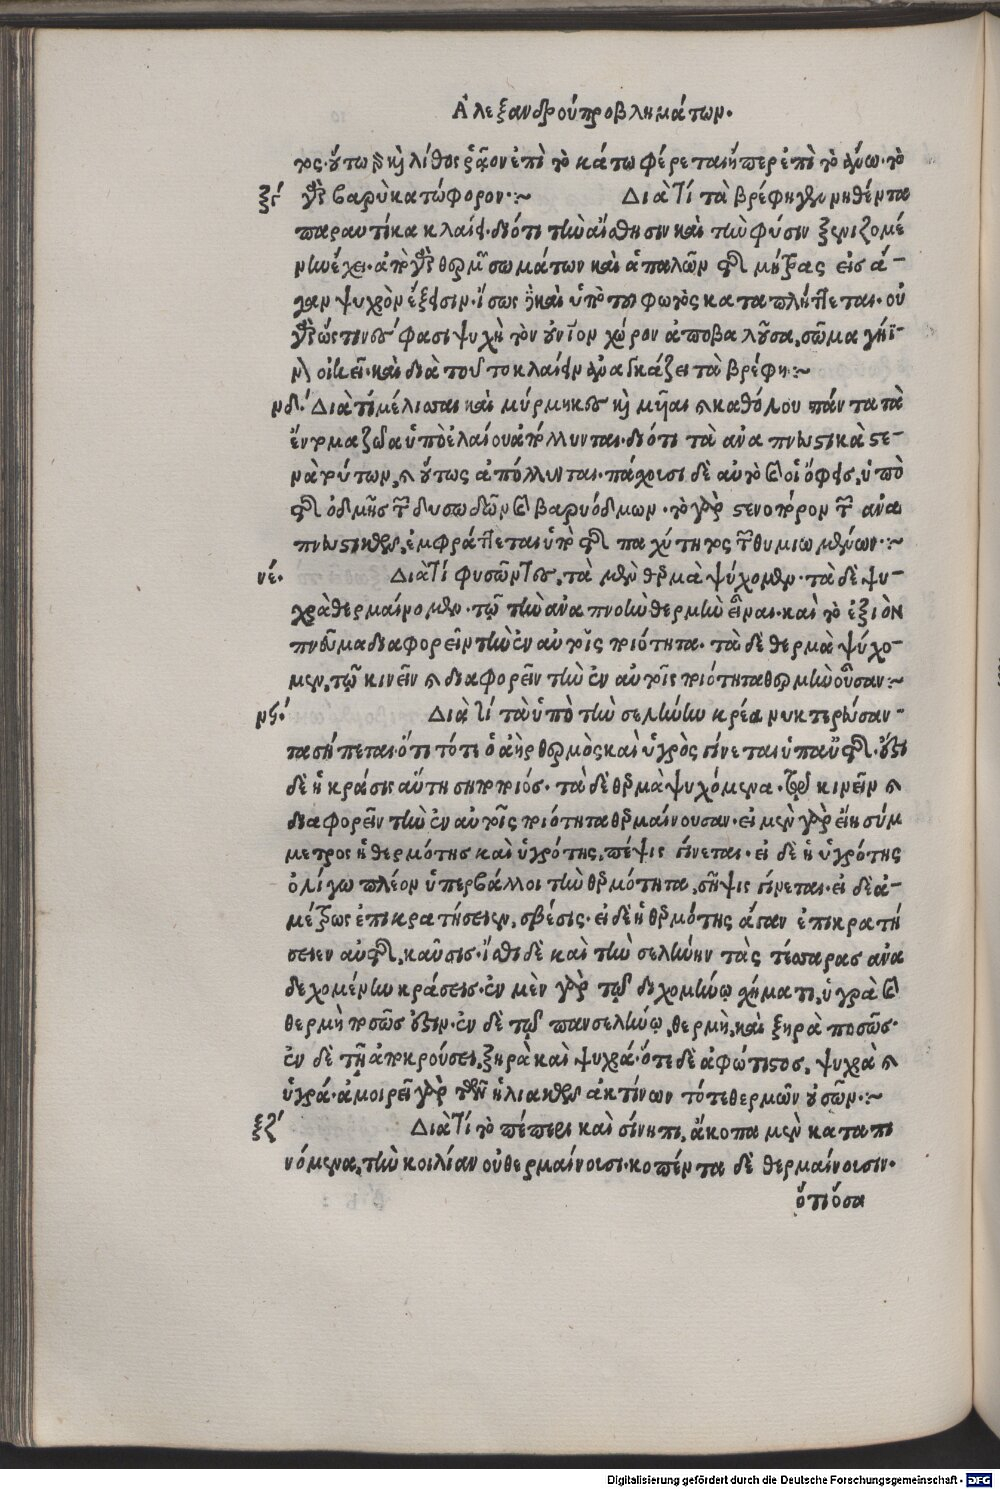 Ἀλεξάνδρου προβλημάτων.
τος. οὕτω δὲ καὶ λίθος ῥᾷον ἐπὶ τὸ κάτω φέρεται ἤπερ ἐπὶ τὸ ἄνω. τὸ
ξϛ΄ γὰρ βαρὺ κατώφορον :~ Διὰ τί τὰ βρέφη γεννηθέντα
παραυτίκα κλαίει. διότι τὴν αἴσθησιν καὶ τὴν φύσιν ξενιζομέ
νην ἔχει. ἀπὸ γὰρ θερμῶν σωμάτων καὶ ἁπαλῶν τῆς μήτρας εἰς ἄ-
γαν ψυχρὸν ἔξεισιν. ἴσως δὲ καὶ ὑπὸ τοῦ φωτὸς καταπλήττεται. οὐ
γὰρ ὥς τινές φασι ψυχὴ τὸν οὐνίον χώρον ἀποβαλοῦσα, σῶμα γήϊ-
νον οἰκεῖ. καὶ διὰ τοῦτο κλαίειν ἀναγκάζει τὰ βρέφη :~
νδ΄. Διὰ τί μέλισσαι καὶ μύρμηκες καὶ μυῖαι καὶ καθόλου πάντα τὰ
ἔντομα ζῶα ὑπὸ ἐλαίου ἀπόλλυνται. διότι τὰ ἀναπνευστικὰ στε-
νὰ τούτων, καὶ οὕτως ἀπόλλυνται. πάσχουσι δὲ αὐτὸ καὶ οἱ ὄφεις, ὑπὸ
τῆς ὀδμῆς τῶν δυσωδῶν καὶ βαρυόδμων. τὸ γὰρ στενόπορον τῶν ἀνα
πνευστικῶν, ἐμφράττεται ὑπὸ τῆς παχύτητος τῶν θυμιωμένων :~
νέ. Διὰ τί φυσῶντες, τὰ μὲν θερμὰ ψύχομεν. τὰ δὲ ψυ-
χρὰ θερμαίνομεν. τῷ τὴν ἀναπνοὴν θερμὴν εἶναι. καὶ τὸ ἐξιὸν
πνεῦμα διαφορεῖν τὴν ἐν αὐτοῖς ποιότητα. τὰ δὲ θερμὰ ψύχο-
μεν, τῷ κινεῖν καὶ διαφορεῖν τὴν ἐν αὐτοῖς ποιότητα θερμὴν οὖσαν :~
νϛ΄ Διὰ τί τὰ ὑπὸ τὴν σελήνην κρέα νυκτερεύσαν-
τα σήπεται. ὅτι τότε ὁ ἀὴρ θερμὸς καὶ ὑγρὸς γίνεται ὑπ' αὐτῆς. ἔστι
δὲ ἡ κρᾶσις αὕτη σηπτιός. τὰ δὲ θερμὰ ψυχόμενα. τῷ κινεῖν καὶ
διαφορεῖν τὴν ἐν αὐτοῖς ποιότητα θερμαίνουσαν. εἰ μὲν γὰρ εἴη σύμ
μετρος ἡ θερμότης καὶ ὑγρότης, πέψις γίνεται. εἰ δὲ ἡ ὑγρότης
ὀλίγω πλέον ὑπερβάλλοι τὴν θερμότητα, σῆψις γίνεται. εἰ δὲ ἀ-
μέτρως ἐπικρατήσειεν, σβέσις. εἰ δὲ ἡ θερμότης ἄγαν ἐπικρατή
σειεν αὐτῆς, καῦσις. ἴσθι δὲ καὶ τὴν σελήνην τὰς τέσσαρας ἀνα
δεχομένην κράσεις. ἐν μὲν γὰρ τῷ διχομήνῳ σχήματι, ὑγρὰ καὶ
θερμὴ ποσῶς ἐστιν. ἐν δὲ τῷ πανσελήνῳ, θερμὴ, καὶ ξηρὰ ποσῶς.
ἐν δὲ τῇ ἀποκρούσει, ξηρὰ καὶ ψυχρά. ὅτε δὲ ἀφώτιστος, ψυχρὰ καὶ
ὑγρά. ἀμοιρεῖ γὰρ τῶν ἡλιακῶν ἀκτίνων τότε θερμῶν οὐσῶν :~
ξζ΄ Διὰ τί τὸ πέπερι καὶ σίνηπι, ἄκοπα μὲν καταπι
νόμενα, τὴν κοιλίαν οὐ θερμαίνουσι. κοπέντα δὲ θερμαίνουσιν.
ὅτι ὅσα
Digitalisierung gefördert durch die Deutsche Forschungsgemeinschaft - DFG